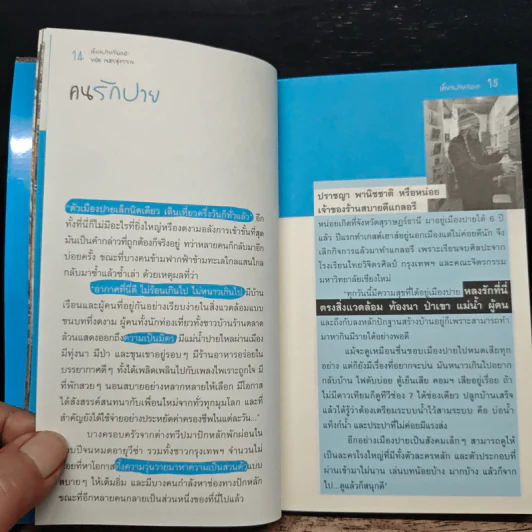 14
คนรักปาย
"ตัวเมืองปายเล็กนิดเดียว เดินเที่ยวครึ่งวันก็ทั่วแล้ว" อีก
ทั้งที่นี่ก็ไม่มีอะไรที่ยิ่งใหญ่หรืองดงามอลังการเข้าขั้นที่สุด
มันเป็นคำกล่าวที่ถูกต้องก็จริงอยู่ ทว่าหลายคนก็กลับมาอีก
บ่อยครั้ง ขณะที่บางคนข้ามฟากฟ้าข้ามทะเลไกลแสนไกล
กลับมาซ้ำแล้วซ้ำเล่า ด้วยเหตุผลที่ว่า
"อากาศที่นี่ดี ไม่ร้อนเกินไป ไม่หนาวเกินไป มีบ้าน
เรือนและผู้คนที่อยู่กันอย่างเรียบง่ายในสิ่งแวดล้อมแบบ
ชนบทที่งดงาม ผู้คนทั้งนักท่องเที่ยวทั้งชาวบ้านร้านตลาด
ล้วนแสดงออกถึงความเป็นมิตร มีแม่น้ำปายไหลผ่านเมือง
มีทุ่งนา มีป่า และขุนเขาอยู่รอบๆ มีร้านอาหารอร่อยใน
บรรยากาศดีๆ ทั้งได้เพลิดเพลินไปกับเพลงไพเราะถูกใจ มี
ที่พักสวยๆ นอนสบายอย่างหลากหลายให้เลือก มีโอกาส
ได้สังสรรค์สนทนากับเพื่อนใหม่จากทั่วทุกมุมโลก และที่
สำคัญยังได้ใช้จ่ายอย่างประหยัดค่าครองชีพในแต่ละวัน..."
บางครอบครัวจากต่างทวีปมาปักหลักพักผ่อนใน
ปีจนหมดอายุวีซ่า รวมทั้งชาวกรุงเทพฯ จำนวนไม่
ที่หาโอกาสทิ้งความวุ่นวายมาหาความเป็นส่วนตัวแบบ
สบายๆ ให้เต็มอิ่ม และมีบางคนกำลังหาช่องทางปักหลัก
ขณะที่อีกหลายคนกลายเป็นส่วนหนึ่งของที่นี่ไปแล้ว
15
ปราชญา พานิชชาติ หรือหน่อย
เจ้าของร้านสบายดีแกลอรี
หน่อยเกิดที่จังหวัดสุราษฎร์ธานี มาอยู่เมืองปายได้ 6 ปี
แล้ว ปีแรกทำเกสต์เฮาส์อยู่นอกเมืองแต่ไม่ค่อยดีนัก จึง
เลิกกิจการแล้วมาทำแกลอรี เพราะเรียนจบศิลปะจาก
โรงเรียนไทยวิจิตรศิลป์ กรุงเทพฯ และคณะจิตรกรรม
มหาวิทยาลัยเชียงใหม่
"ทุกวันนี้มีความสุขที่ได้อยู่เมืองปาย หลงรักที่นี่
ตรงสิ่งแวดล้อม ท้องนา ป่าเขา แม่น้ำ ผู้คน
และถึงกับลงหลักปักฐานสร้างบ้านอยู่ก็เพราะสามารถทำ
มาหากินมีรายได้อย่างพอดี
แม้จะดูเหมือนชื่นชอบเมืองปายไปหมดเสียทุก
อย่าง แต่ก็ยังมีเรื่องที่อยากจะบ่น มันหนาวเกินไปอยาก
กลับบ้าน ไฟดับบ่อย ตู้เย็นเสีย คอมฯ เสียอยู่เรื่อย ถ้า
ไม่มีดาวเทียมก็ดูทีวีช่อง 7 ได้ช่องเดียว ปลูกบ้านเสร็จ
แล้วได้รู้ว่าต้องเตรียมระบบน้ำไว้สามระบบ คือ บ่อน้ำ
แท้งก์น้ำ และประปาที่ไม่ค่อยมีแรงส่ง
อีกอย่างเมืองปายเป็นสังคมเล็กๆ สามารถดูให้
เป็นละครโรงใหญ่ที่มีทั้งตัวละครหลัก และตัวประกอบที่
ผ่านเข้ามาไม่นาน เล่นบทน้อยบ้าง มากบ้าง แล้วก็จาก
ไป...ดูแล้วก็สนุกดี"